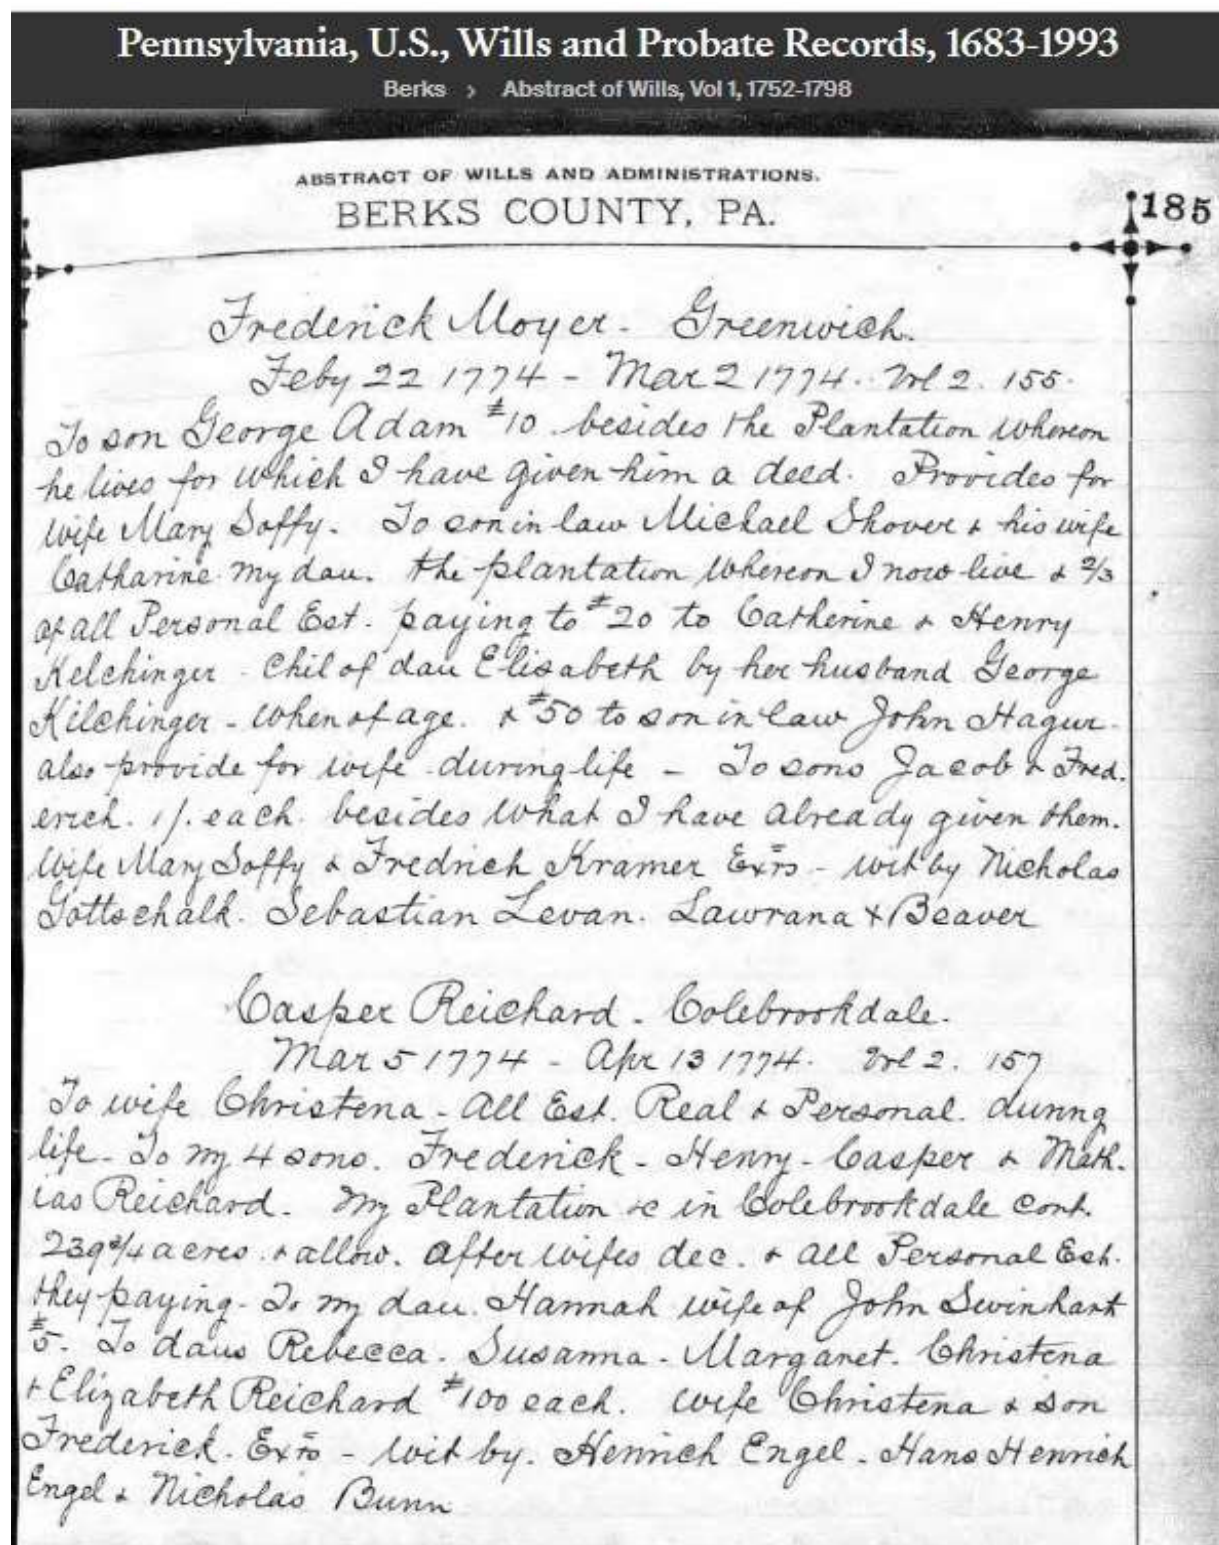 Pennsylvania, U.S., Wills and Probate Records, 1683-1993
Berks > Abstract of Wills, Vol 1, 1752-1798
ABSTRACT OF WILLS AND ADMINISTRATIONS.
BERKS COUNTY, PA.
185
Frederick Moyer - Greenwich.
Feby 22 1774 - Mar 2 1774. Vol 2. 155.
To son George Adam £10 besides the Plantation whereon
he lives for which I have given him a deed. Provides for
wife Mary Soffy. To son in law Michael Shover & his wife
Catharine my dau. the plantation whereon I now live & 2/3
of all Personal Est. paying to £20 to Catherine & Henry
Kelchinger - Chil of dau Elisabeth by her husband George
Kilchinger - when of age. & £50 to son in law John Hagur -
also provide for wife during life - To sons Jacob & Fred.
erich. 1/. each. besides what I have already given them.
Wife Mary Soffy & Fredrich Kramer Exrs - wit by Nicholas
Gottschalk. Sebastian Levan. Lawrana X Beaver
Casper Reichard - Colebrookdale.
Mar 5 1774 - Apr 13 1774. Vol 2. 157
To wife Christena - All Est. Real & Personal. during
life - To my 4 sons. Frederick - Henry - Casper & Math.
ias Reichard. My Plantation &c in Colebrookdale cont.
239 3/4 acres. & allow. after wifes dec. & all Personal Est.
they paying - To my dau. Hannah wife of John Swinhart
£5. To daus Rebecca. Susanna - Margaret. Christena
& Elizabeth Reichard £100 each. wife Christena & son
Frederick. Exrs - wit by. Henrich Engel - Hans Henrich
Engel & Nicholas Bunn